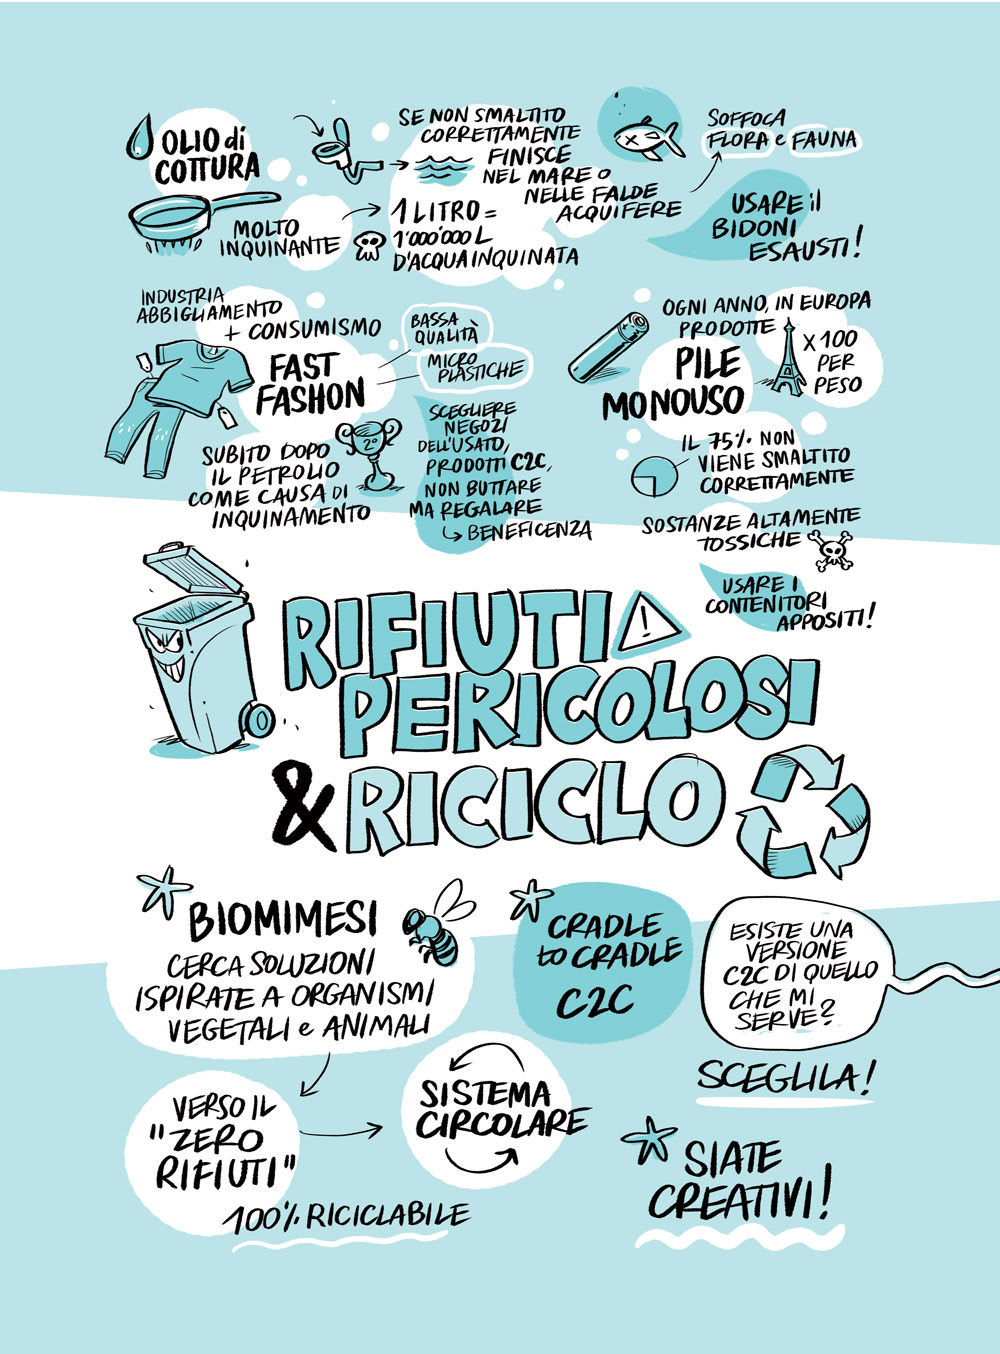 OLIO di
COTTURA
MOLTO
INQUINANTE
SE NON SMALTITO
CORRETTAMENTE
FINISCE
NEL MARE O
NELLE FALDE
ACQUIFERE
1 LITRO =
1'000'000 L
D'ACQUA INQUINATA
SOFFOCA
FLORA e FAUNA
USARE il
BIDONI
ESAUSTI!
INDUSTRIA
ABBIGLIAMENTO
+ CONSUMISMO
FAST
FASHON
BASSA
QUALITÀ
MICRO
PLASTICHE
SUBITO DOPO
IL PETROLIO
COME CAUSA DI
INQUINAMENTO
2°
SCEGLIERE
NEGOZI
DELL'USATO,
PRODOTTI C2C,
NON BUTTARE
MA REGALARE
BENEFICENZA
OGNI ANNO, IN EUROPA
PRODOTTE
PILE
MONOUSO
X 100
PER
PESO
IL 75% NON
VIENE SMALTITO
CORRETTAMENTE
SOSTANZE ALTAMENTE
TOSSICHE
USARE I
CONTENITORI
APPOSITI!
RIFIUTI !
PERICOLOSI
& RICICLO
BIOMIMESI
CERCA SOLUZIONI
ISPIRATE A ORGANISMI
VEGETALI e ANIMALI
VERSO IL
"ZERO
RIFIUTI"
100% RICICLABILE
SISTEMA
CIRCOLARE
CRADLE
to CRADLE
C2C
ESISTE UNA
VERSIONE
C2C DI QUELLO
CHE MI
SERVE?
SCEGLILA!
SIATE
CREATIVI!